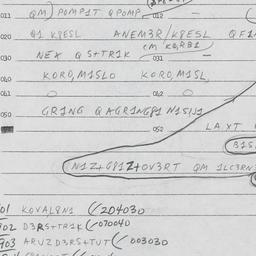 011 QM) POMP1T QPOMP 012
020 Q1 K8ESL ANEM3R/K8ESL QF1
030 NEX QS+TR1K 031
040 KORO,M1SLO KORO,M1SL,
061 062
050 GR1NG QAGR1NG81 N1S/J1
052 LAXT
B1S
N1Z+G81Z+OV3RT QM 1LC3RN
01 KOVAL8N1 (/204030
902 D3RS+TR1K (/070040
903 ARUZD3RS+TUT (/ 003030